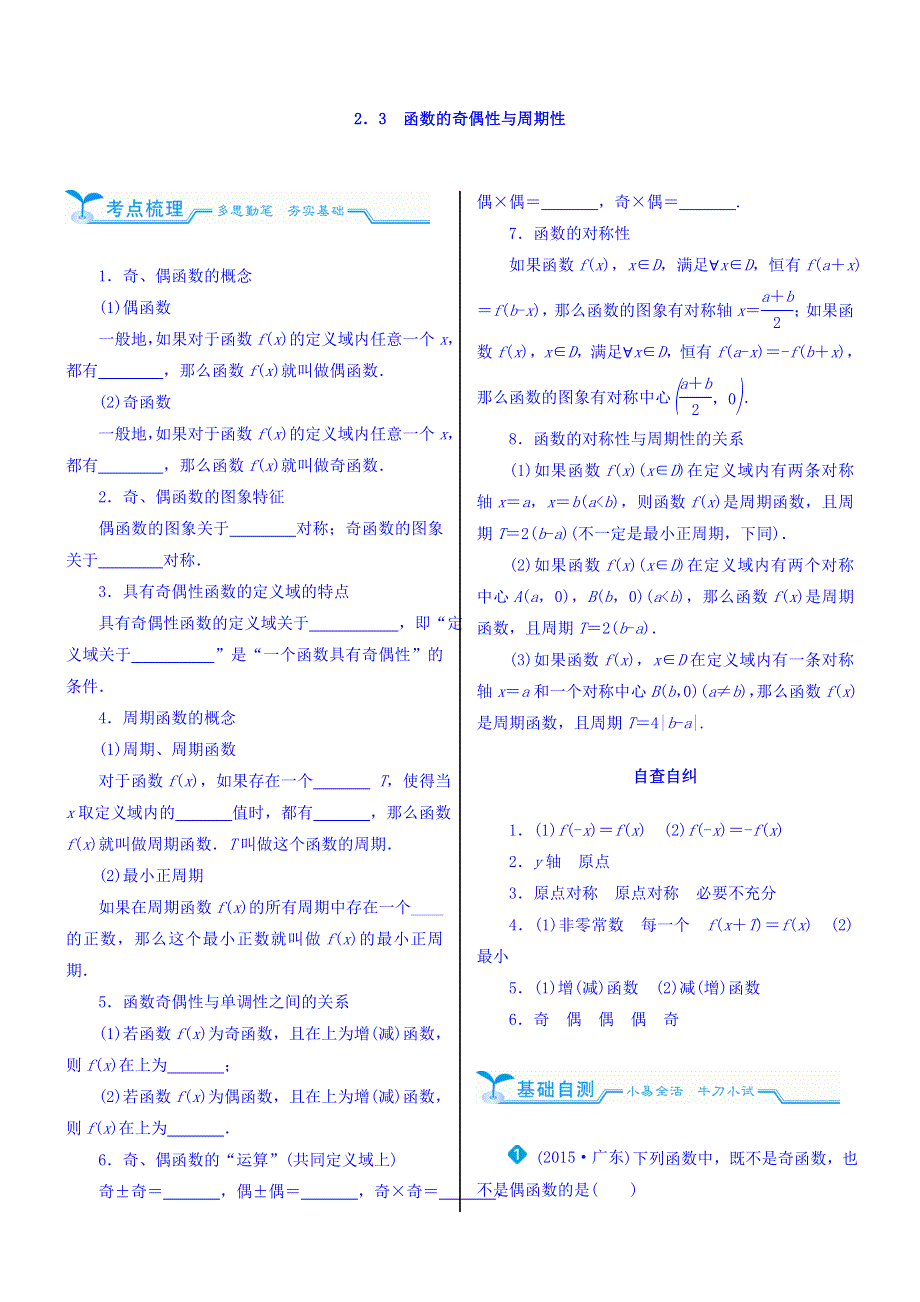 2．3　函数的奇偶性与周期性
考点梳理　多思勤笔　夯实基础
1．奇、偶函数的概念
(1)偶函数
一般地，如果对于函数 f(x)的定义域内任意一个 x，
都有________，那么函数 f(x)就叫做偶函数．
(2)奇函数
一般地，如果对于函数 f(x)的定义域内任意一个 x，
都有________，那么函数 f(x)就叫做奇函数．
2．奇、偶函数的图象特征
偶函数的图象关于________对称；奇函数的图象
关于________对称．
3．具有奇偶性函数的定义域的特点
具有奇偶性函数的定义域关于___________，即“定
义域关于__________”是“一个函数具有奇偶性”的
条件．
4．周期函数的概念
(1)周期、周期函数
对于函数 f(x)，如果存在一个_______ T，使得当
x 取定义域内的_______值时，都有_______，那么函数
f(x)就叫做周期函数．T 叫做这个函数的周期．
(2)最小正周期
如果在周期函数 f(x)的所有周期中存在一个____
的正数，那么这个最小正数就叫做 f(x)的最小正周
期．
5．函数奇偶性与单调性之间的关系
(1)若函数 f(x)为奇函数，且在上为增(减)函数，
则 f(x)在上为_______；
(2)若函数 f(x)为偶函数，且在上为增(减)函数，
则 f(x)在上为_______．
6．奇、偶函数的“运算”(共同定义域上)
奇±奇＝_______，偶±偶＝_______，奇×奇＝_______，
偶×偶＝_______，奇×偶＝_______．
7．函数的对称性
如果函数 f(x)，x∈D，满足∀x∈D，恒有 f(a＋x)
＝f(b-x)，那么函数的图象有对称轴 x＝(a＋b)/2；如果函
数 f(x)，x∈D，满足∀x∈D，恒有 f(a-x)＝-f(b＋x)，
那么函数的图象有对称中心((a＋b)/2，0)．
8．函数的对称性与周期性的关系
(1)如果函数 f(x)(x∈D)在定义域内有两条对称
轴 x＝a，x＝b(a<b)，则函数 f(x)是周期函数，且周
期 T＝2(b-a)(不一定是最小正周期，下同)．
(2)如果函数 f(x)(x∈D)在定义域内有两个对称
中心 A(a，0)，B(b，0)(a<b)，那么函数 f(x)是周期
函数，且周期 T＝2(b-a)．
(3)如果函数 f(x)，x∈D 在定义域内有一条对称
轴 x＝a 和一个对称中心 B(b，0)(a≠b)，那么函数 f(x)
是周期函数，且周期 T＝4|b-a|．
自查自纠
1．(1)f(-x)＝f(x)　(2)f(-x)＝-f(x)
2．y 轴　原点
3．原点对称　原点对称　必要不充分
4．(1)非零常数　每一个　f(x＋T)＝f(x)　(2)
最小
5．(1)增(减)函数　(2)减(增)函数
6．奇　偶　偶　偶　奇
基础自测　小易全活　牛刀小试
1 (2015·广东)下列函数中，既不是奇函数，也
不是偶函数的是(　　)